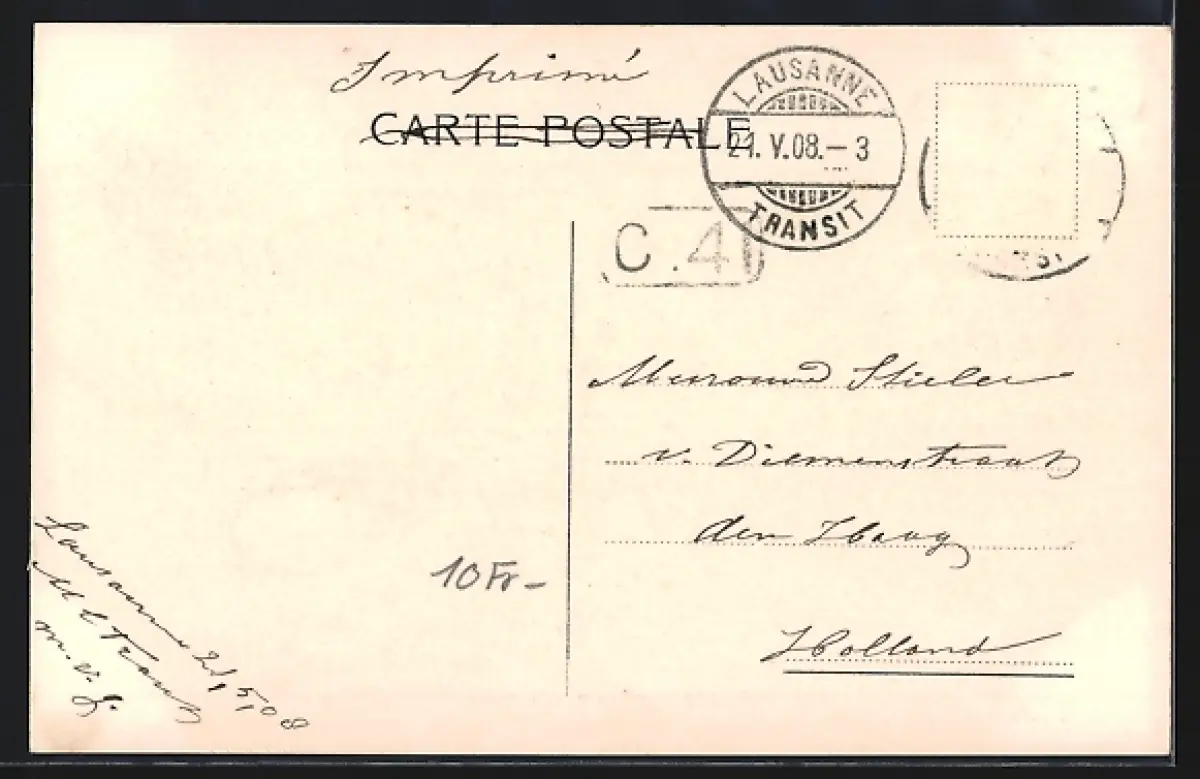 Imprimé
CARTE POSTALE
LAUSANNE
21.V.08.–3
TRANSIT
C.41
v. Diemenstraat
den Haag
Holland
10 Fr–
Lausanne 21/5/08
m.v.g.